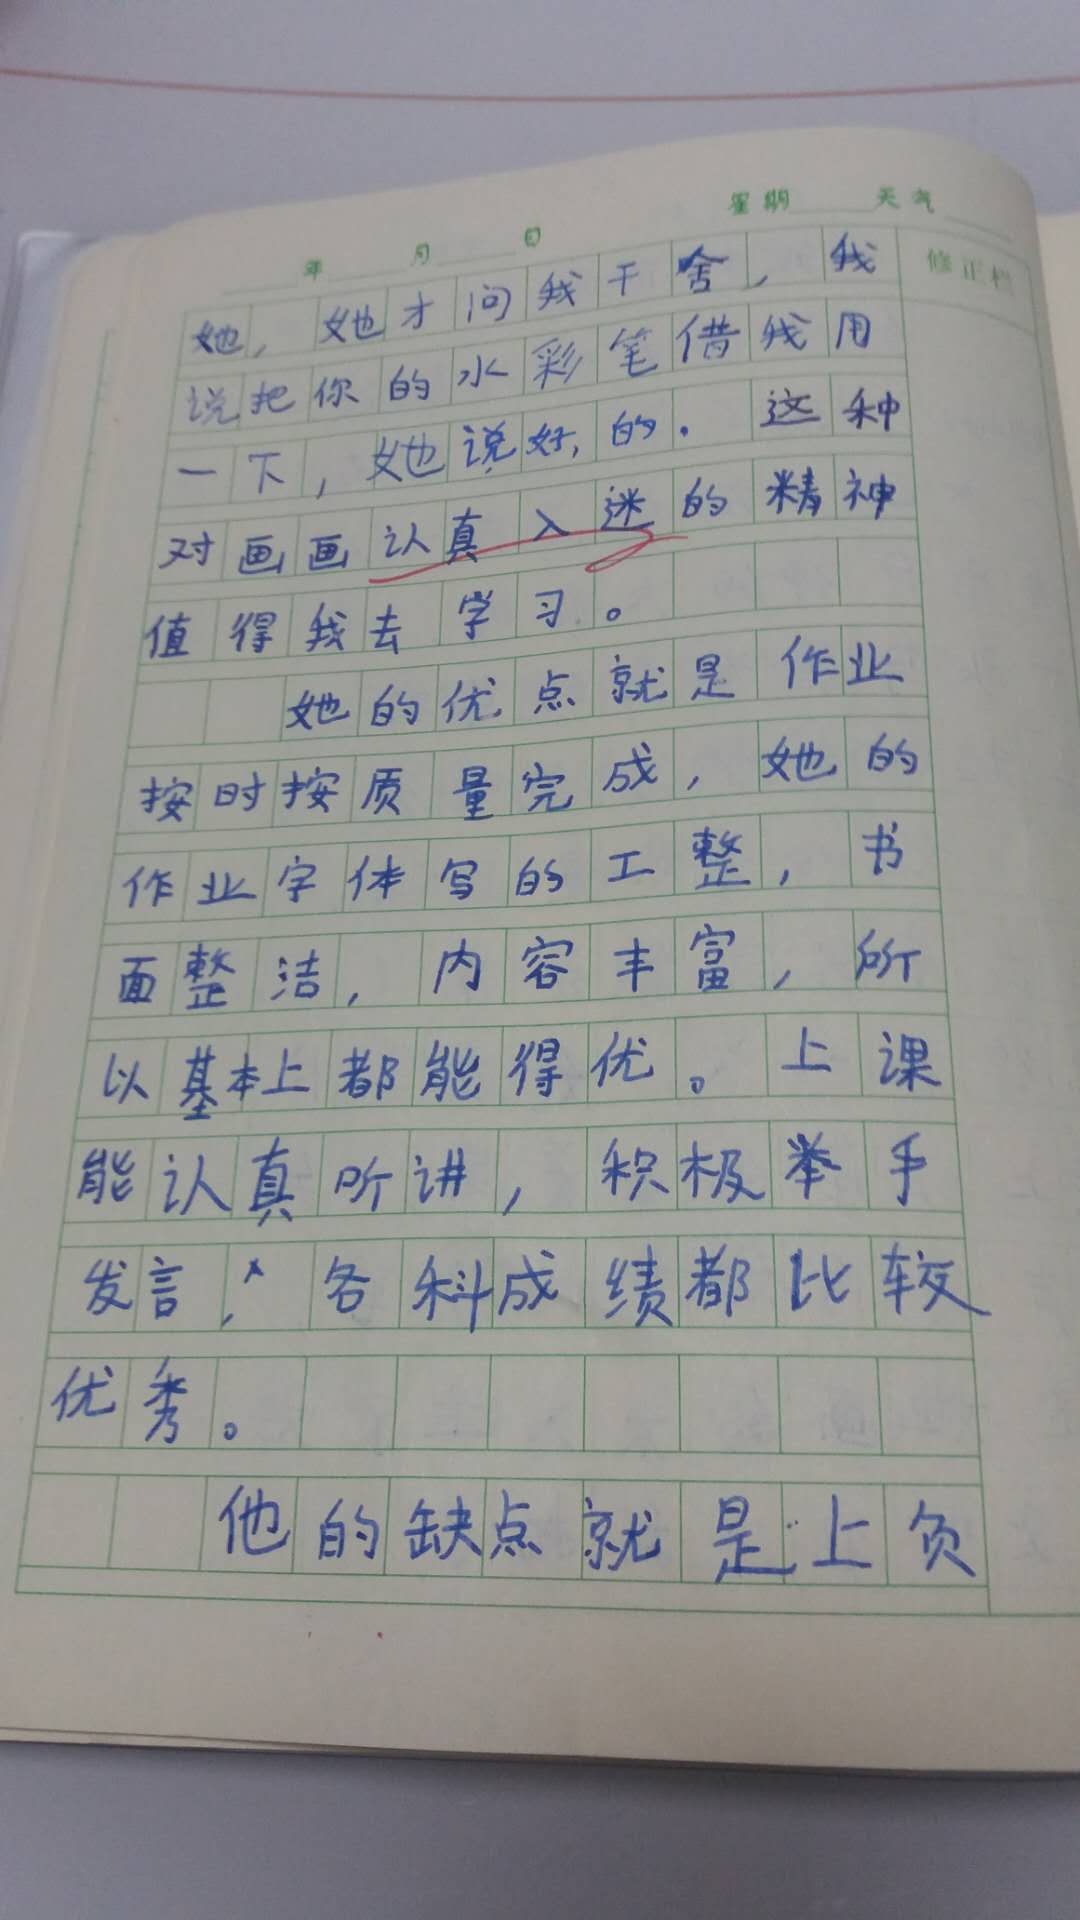 星期 天气
年 月 日
修正栏
她，她才问我干舍，我
说把你的水彩笔借我用
一下，她说好，的．这种
对画画认真入迷的精神
值得我去学习。
她的优点就是作业
按时按质量完成，她的
作业字体写的工整，书
面整洁，内容丰富，所
以基本上都能得优。上课
能认真听讲，积极举手
发言，各科成绩都比较
优秀。
他的缺点就是上负